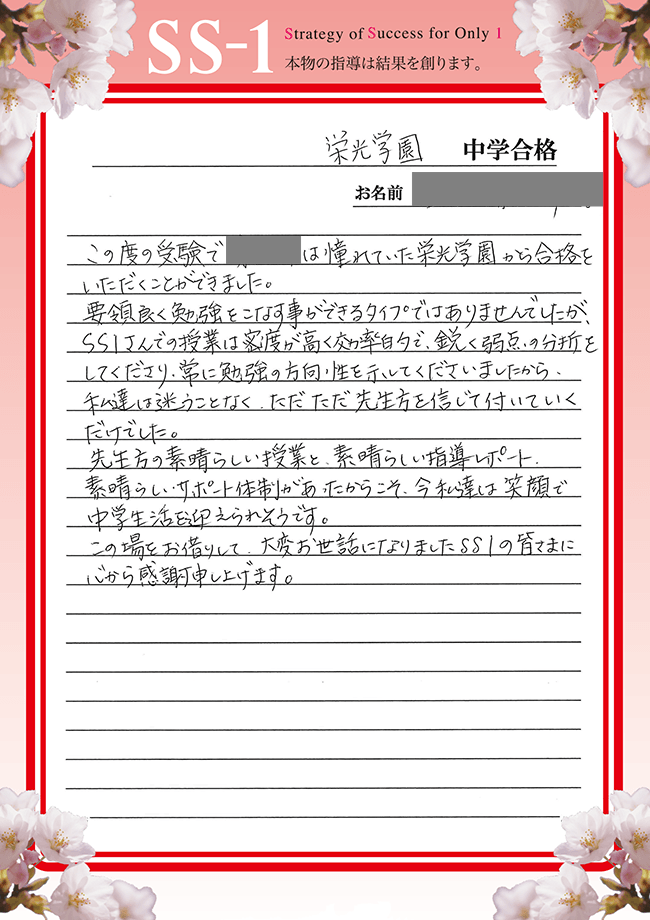 SS-1
Strategy of Success for Only 1
本物の指導は結果を創ります。
栄光学園 中学合格
お名前
この度の受験で は憧れていた栄光学園から合格を
いただくことができました。
要領良く勉強をこなす事ができるタイプではありませんでしたが、
SS1さんでの授業は密度が高く効率的で、鋭く弱点の分析を
してくださり、常に勉強の方向性を示してくださいましたから、
私達は迷うことなく、ただただ先生方を信じて付いていく
だけでした。
先生方の素晴らしい授業と、素晴らしい指導レポート、
素晴らしいサポート体制があったからこそ、今私達は笑顔で
中学生活を迎えられそうです。
この場をお借りして、大変お世話になりましたSS1の皆さまに
心から感謝申し上げます。